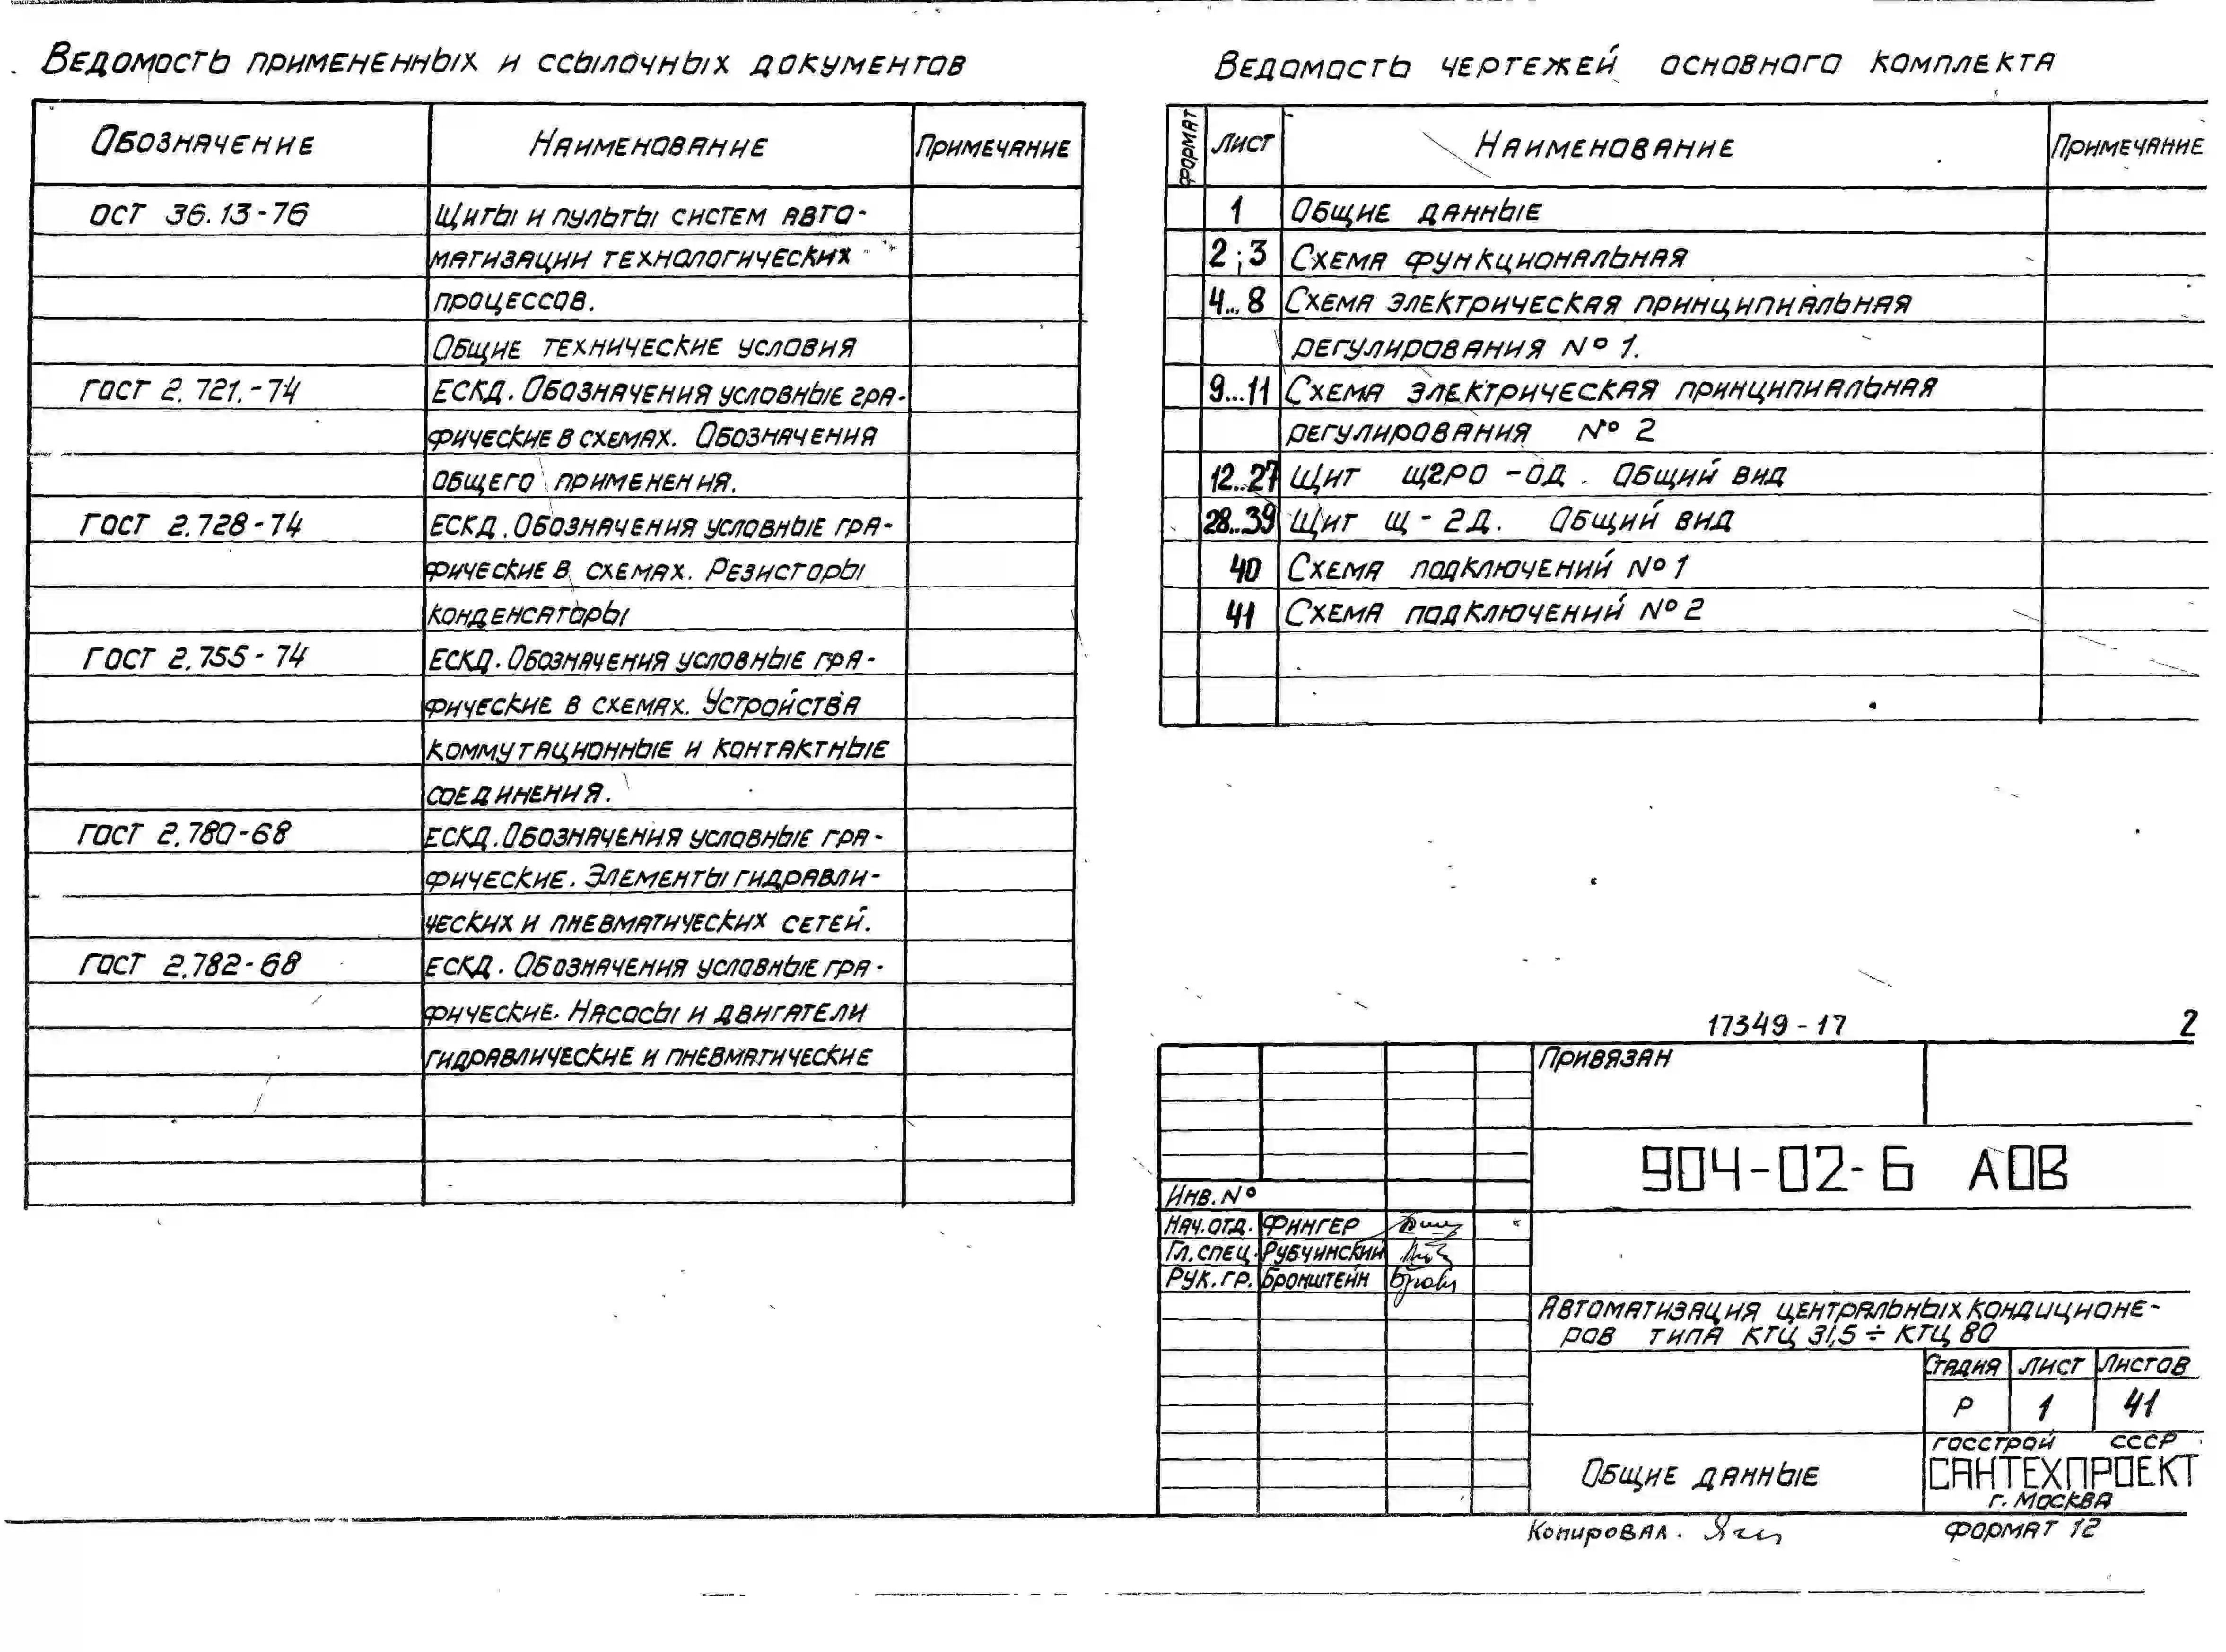 Ведомость примененных и ссылочных документов
Обозначение Наименование Примечание
ОСТ 36.13-76 Щиты и пульты систем авто-
матизации технологических
процессов.
Общие технические условия
ГОСТ 2.721.-74 ЕСКД. Обозначения условные гра-
фические в схемах. Обозначения
общего применения.
ГОСТ 2.728-74 ЕСКД. Обозначения условные гра-
фические в схемах. Резисторы
конденсаторы
ГОСТ 2.755-74 ЕСКД. Обозначения условные гра-
фические в схемах. Устройства
коммутационные и контактные
соединения.
ГОСТ 2.780-68 ЕСКД. Обозначения условные гра-
фические. Элементы гидравли-
ческих и пневматических сетей.
ГОСТ 2.782-68 ЕСКД. Обозначения условные гра-
фические. Насосы и двигатели
гидравлические и пневматические
Ведомость чертежей основного комплекта
Формат Лист Наименование Примечание
1 Общие данные
2;3 Схема функциональная
4...8 Схема электрическая принципиальная
регулирования №1.
9...11 Схема электрическая принципиальная
регулирования №2
12..27 Щит ЩГРО-ОД. Общий вид
28..39 Щит Щ-2Д. Общий вид
40 Схема подключений №1
41 Схема подключений №2
17349-17 2
Привязан
904-02-6 АОВ
Инв.№
Нач.отд. Фингер
Гл.спец. Рубчинский
Рук.гр. Бронштейн
Автоматизация центральных кондиционе-
ров типа КТЦ 31,5÷КТЦ 80
Стадия Лист Листов
Р 1 41
Общие данные
Госстрой СССР
САНТЕХПРОЕКТ
г. Москва
Копировал. Формат 12